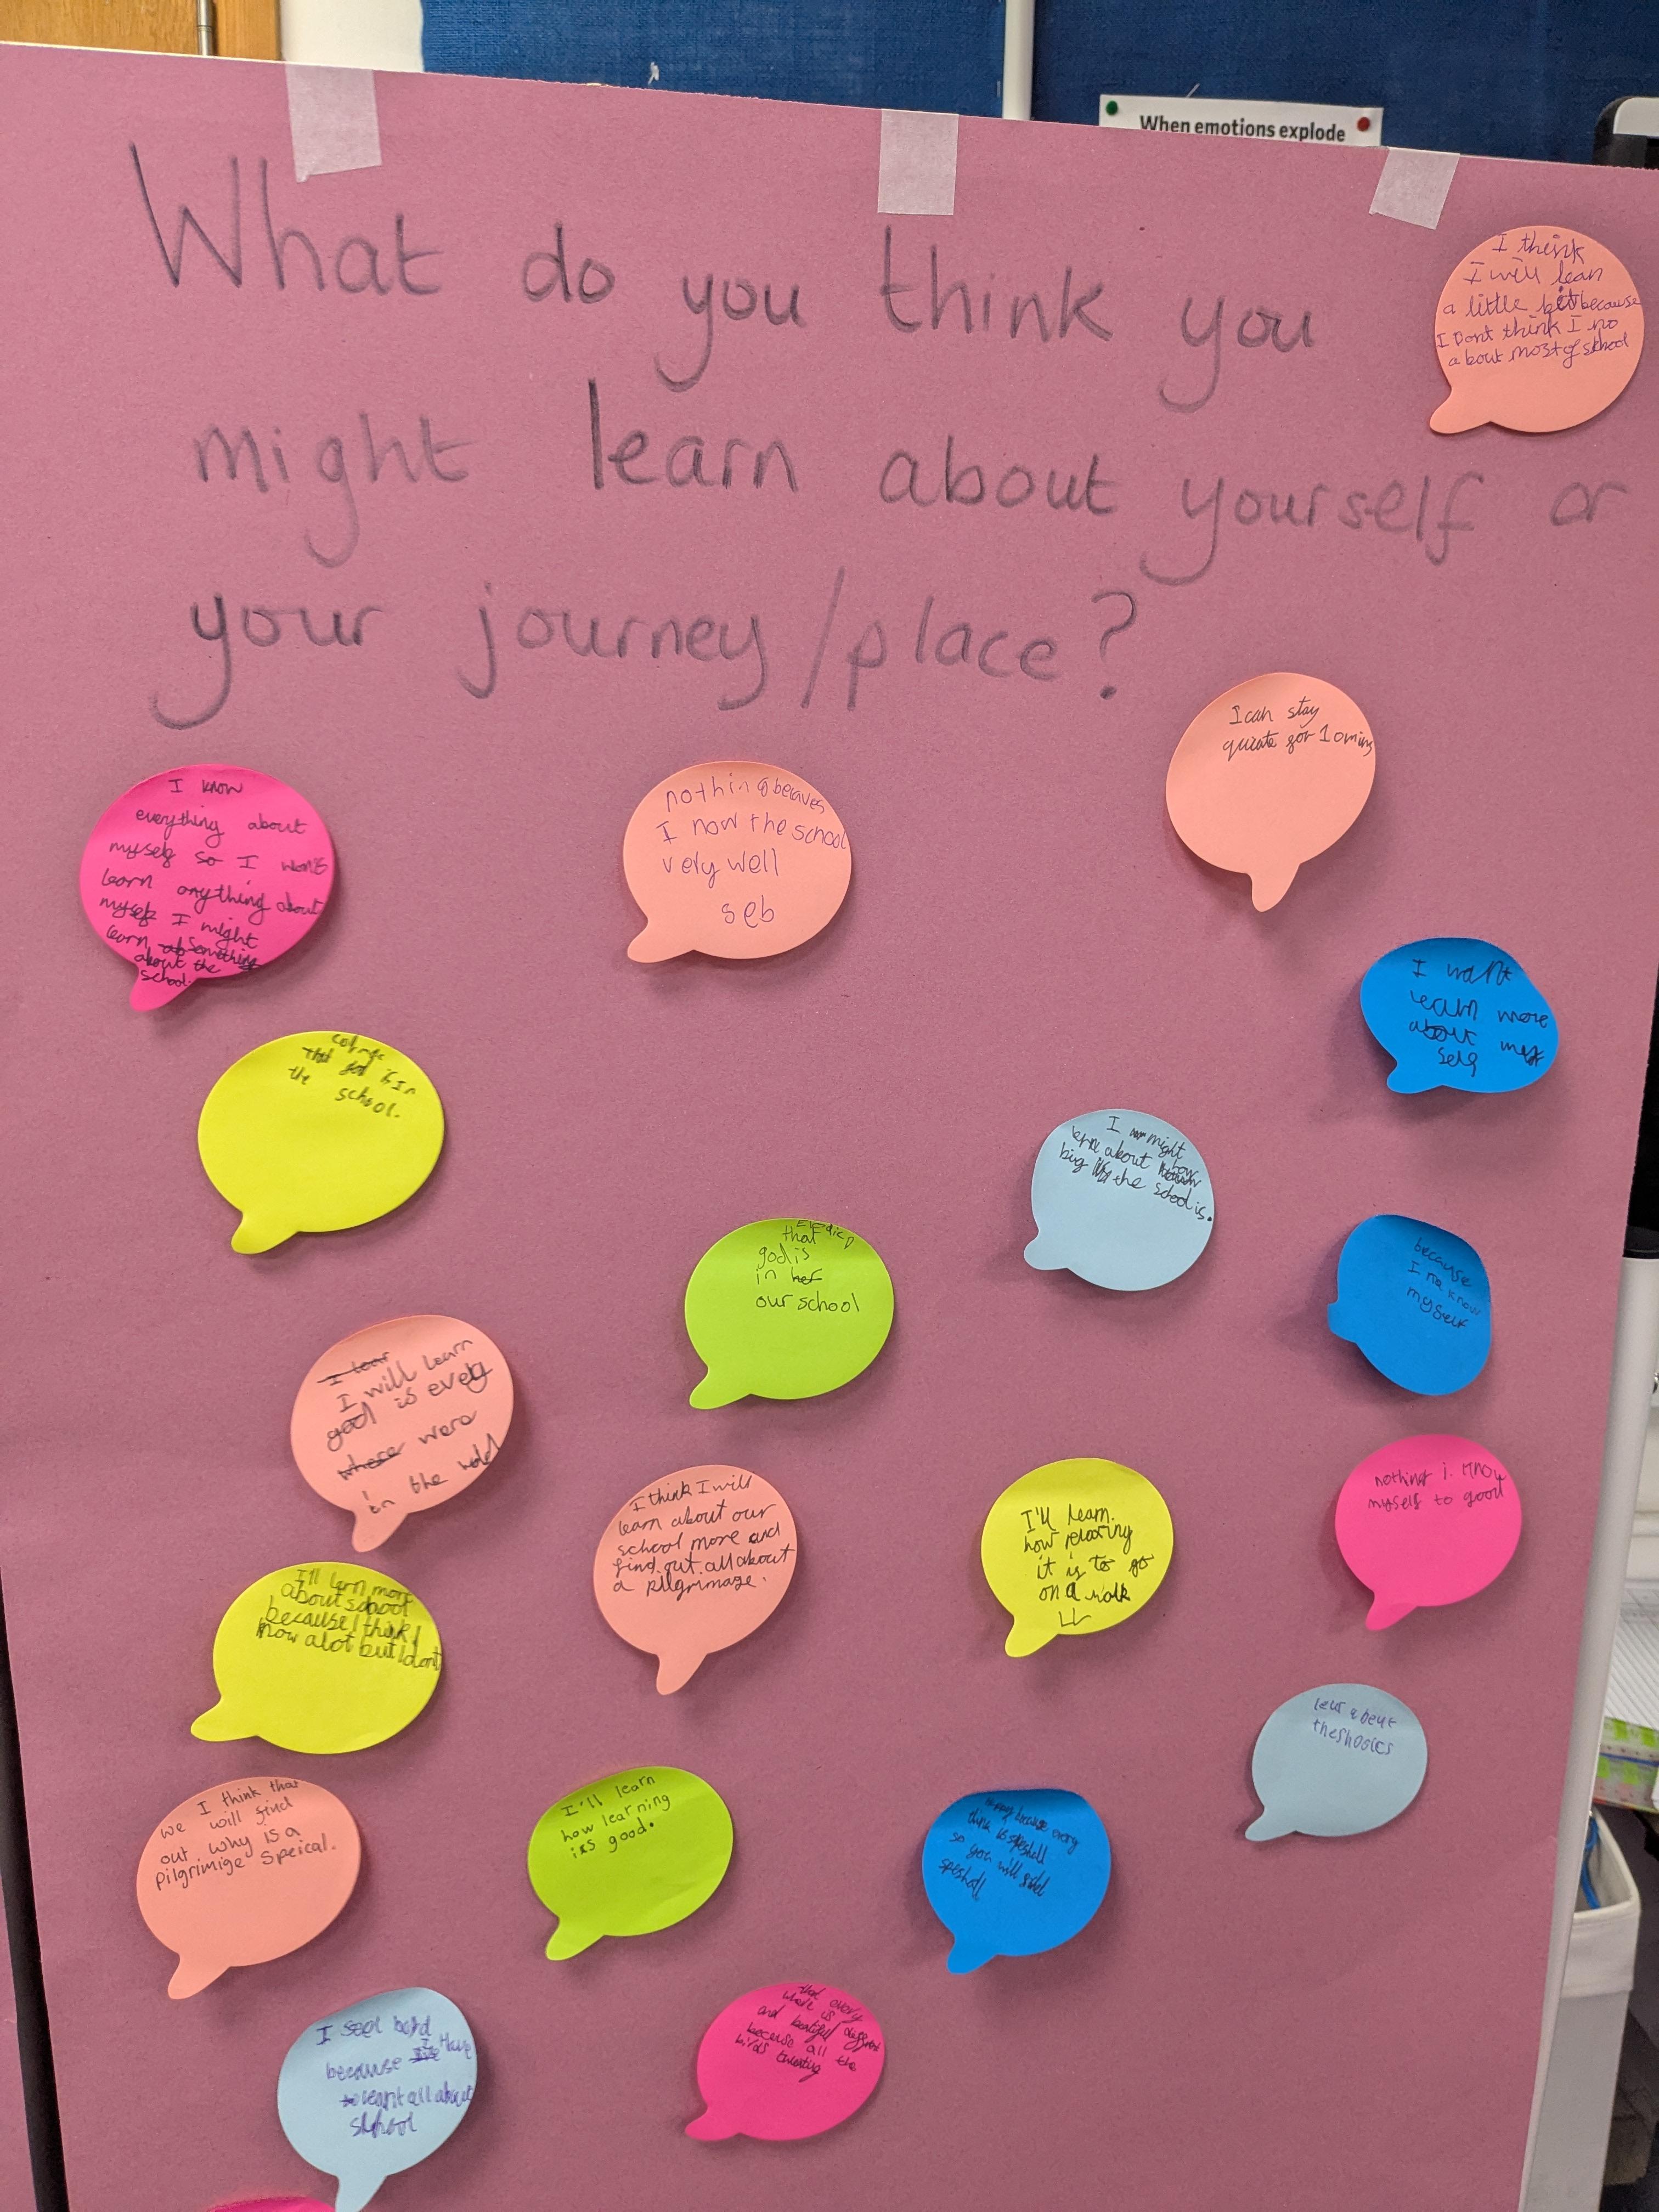 When emotions explode
What do you think you
might learn about yourself or
your journey/place?
I think
I will lean
a little bit because
I Dont think I no
about most of school
I can stay
quiate for 10 mins
I know
everything about
myself so I won't
learn anything about
myself I might
learn something
about the
school.
nothing
I now the school
very well
seb
I want
learn more
about my
self
that god is in
the school.
I might
about how
big the school is.
that
god is
in her
our school
because
I know
myself
I lear
I will learn
god is every
where were
in the
I think I will
learn about our
school more and
find out all about
a pilgrimage.
I'll learn
how relaxing
it is to go
on a walk
nothing i know
myself to good
I'll lern more
about school
because I think I
know alot but I dont
about
I think that
we will find
out why is a
pilgrimige Speical.
I'll learn
how learning
is good.
because every
think is speshall
so you will
speshall
I feel
because I have
learnt all about
school
that every
where is different
and
because all the
birds